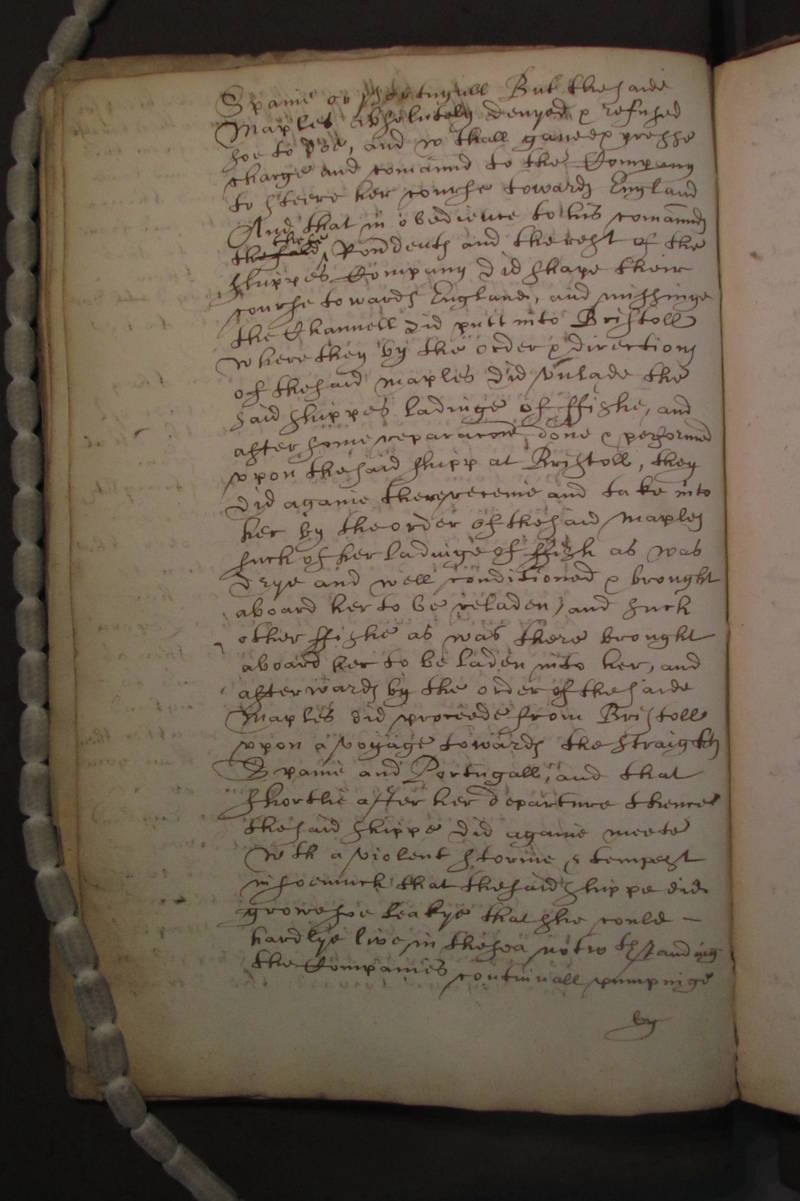 Spaine or Portugall But the saide
Maples absolutely denyed & refused
soe to doe, and wthall gave expresse
charge and comannd to the Company
to steere her course towards England
And that in obedience to his comannds
the said these Rondents and the rest of the
shippes Company did shape their
course towards England, and missinge
the Channell did putt into Bristoll
where they by the order & direction
of the said Maples did vnlade the
said shippes ladinge of ffishe, and
after some reparacons done & performed
vpon the said shipp at Bristoll, they
did againe there receive and take into
her by the order of the said Maples
such of her ladinge of ffish as was
drye and well conditioned & brought
aboard her to be reladen, and such
other ffishe as was there brought
aboard her to be laden into her, and
afterwards by the order of the saide
Maples did proceede from Bristoll
vpon a voyage towards the straights
Spaine and Portugall, and that
shortlie after her departure thence
the said shippe did againe meete
wth a violent storme & tempest
in soe much that the said shippe did
growe soe leakye that she could
hardlye live in the sea notwthstanding
the Companies continuall pumpinge
by